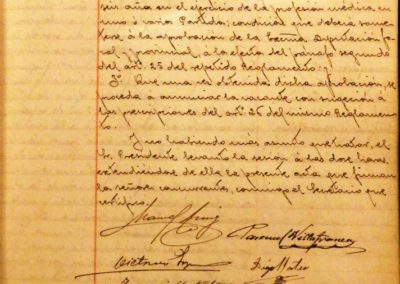 seis años en el ejercicio de la profesión médica en
uno ó varios Partidos; condición que deberá some-
terse á la aprobación de la Excma. Diputación fo-
ral y provincial, á los efectos del párrafo segundo
del art. 25 del referido Reglamento.
3º. Que una vez obtenida dicha aprobación, se
proceda á anunciar la vacante con sujeción á
las prescripciones del art. 26 del mismo Reglamen-
to.
Y no habiendo más asuntos que tratar, el
Sr. Presidente levantó la sesión á las doce horas
extendiéndose de ella la presente acta que firman
los señores concurrentes, conmigo el Secretario que
certifico.
Pascual Villafranca
Victorino
Diego Mateo